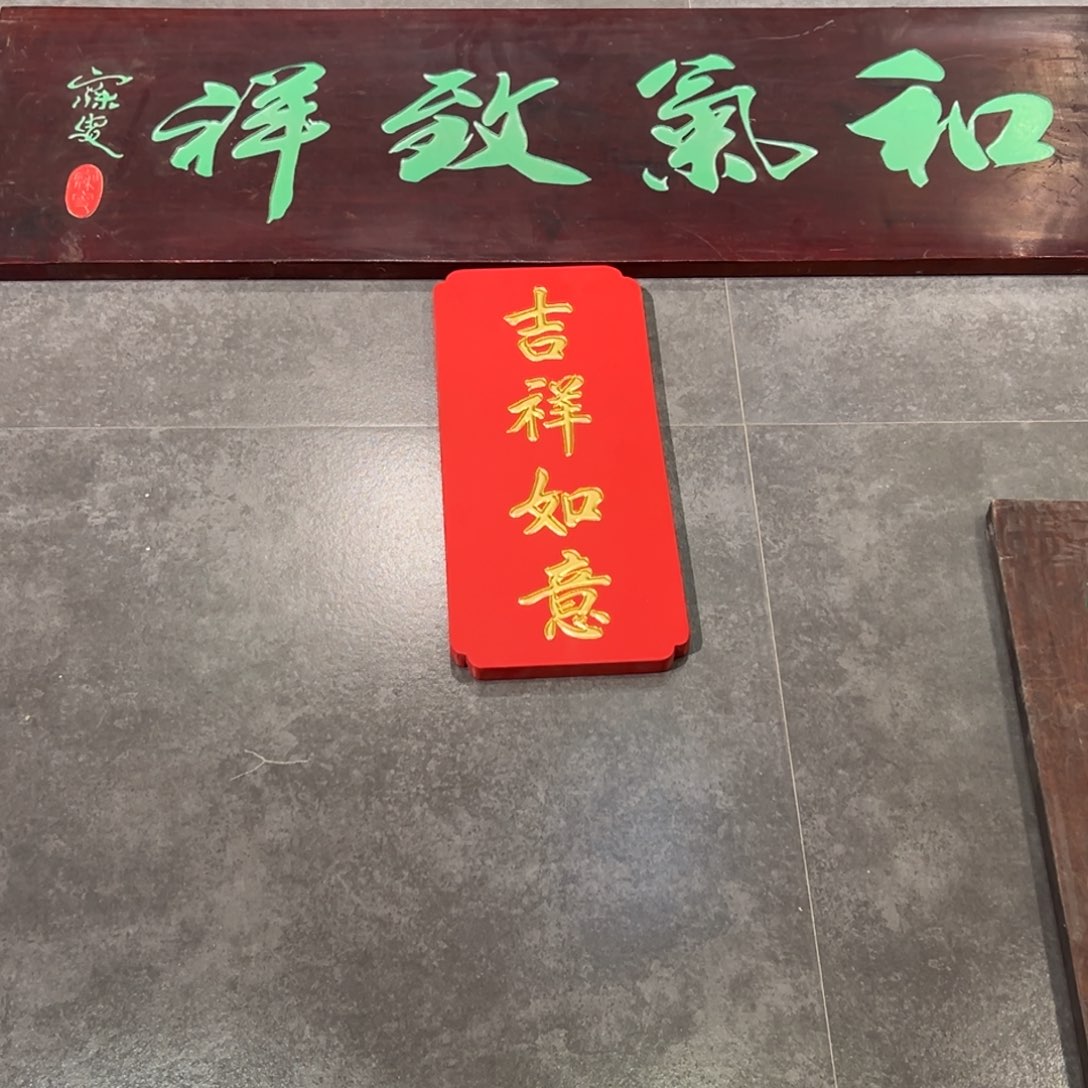 和氣致祥
吉祥如意